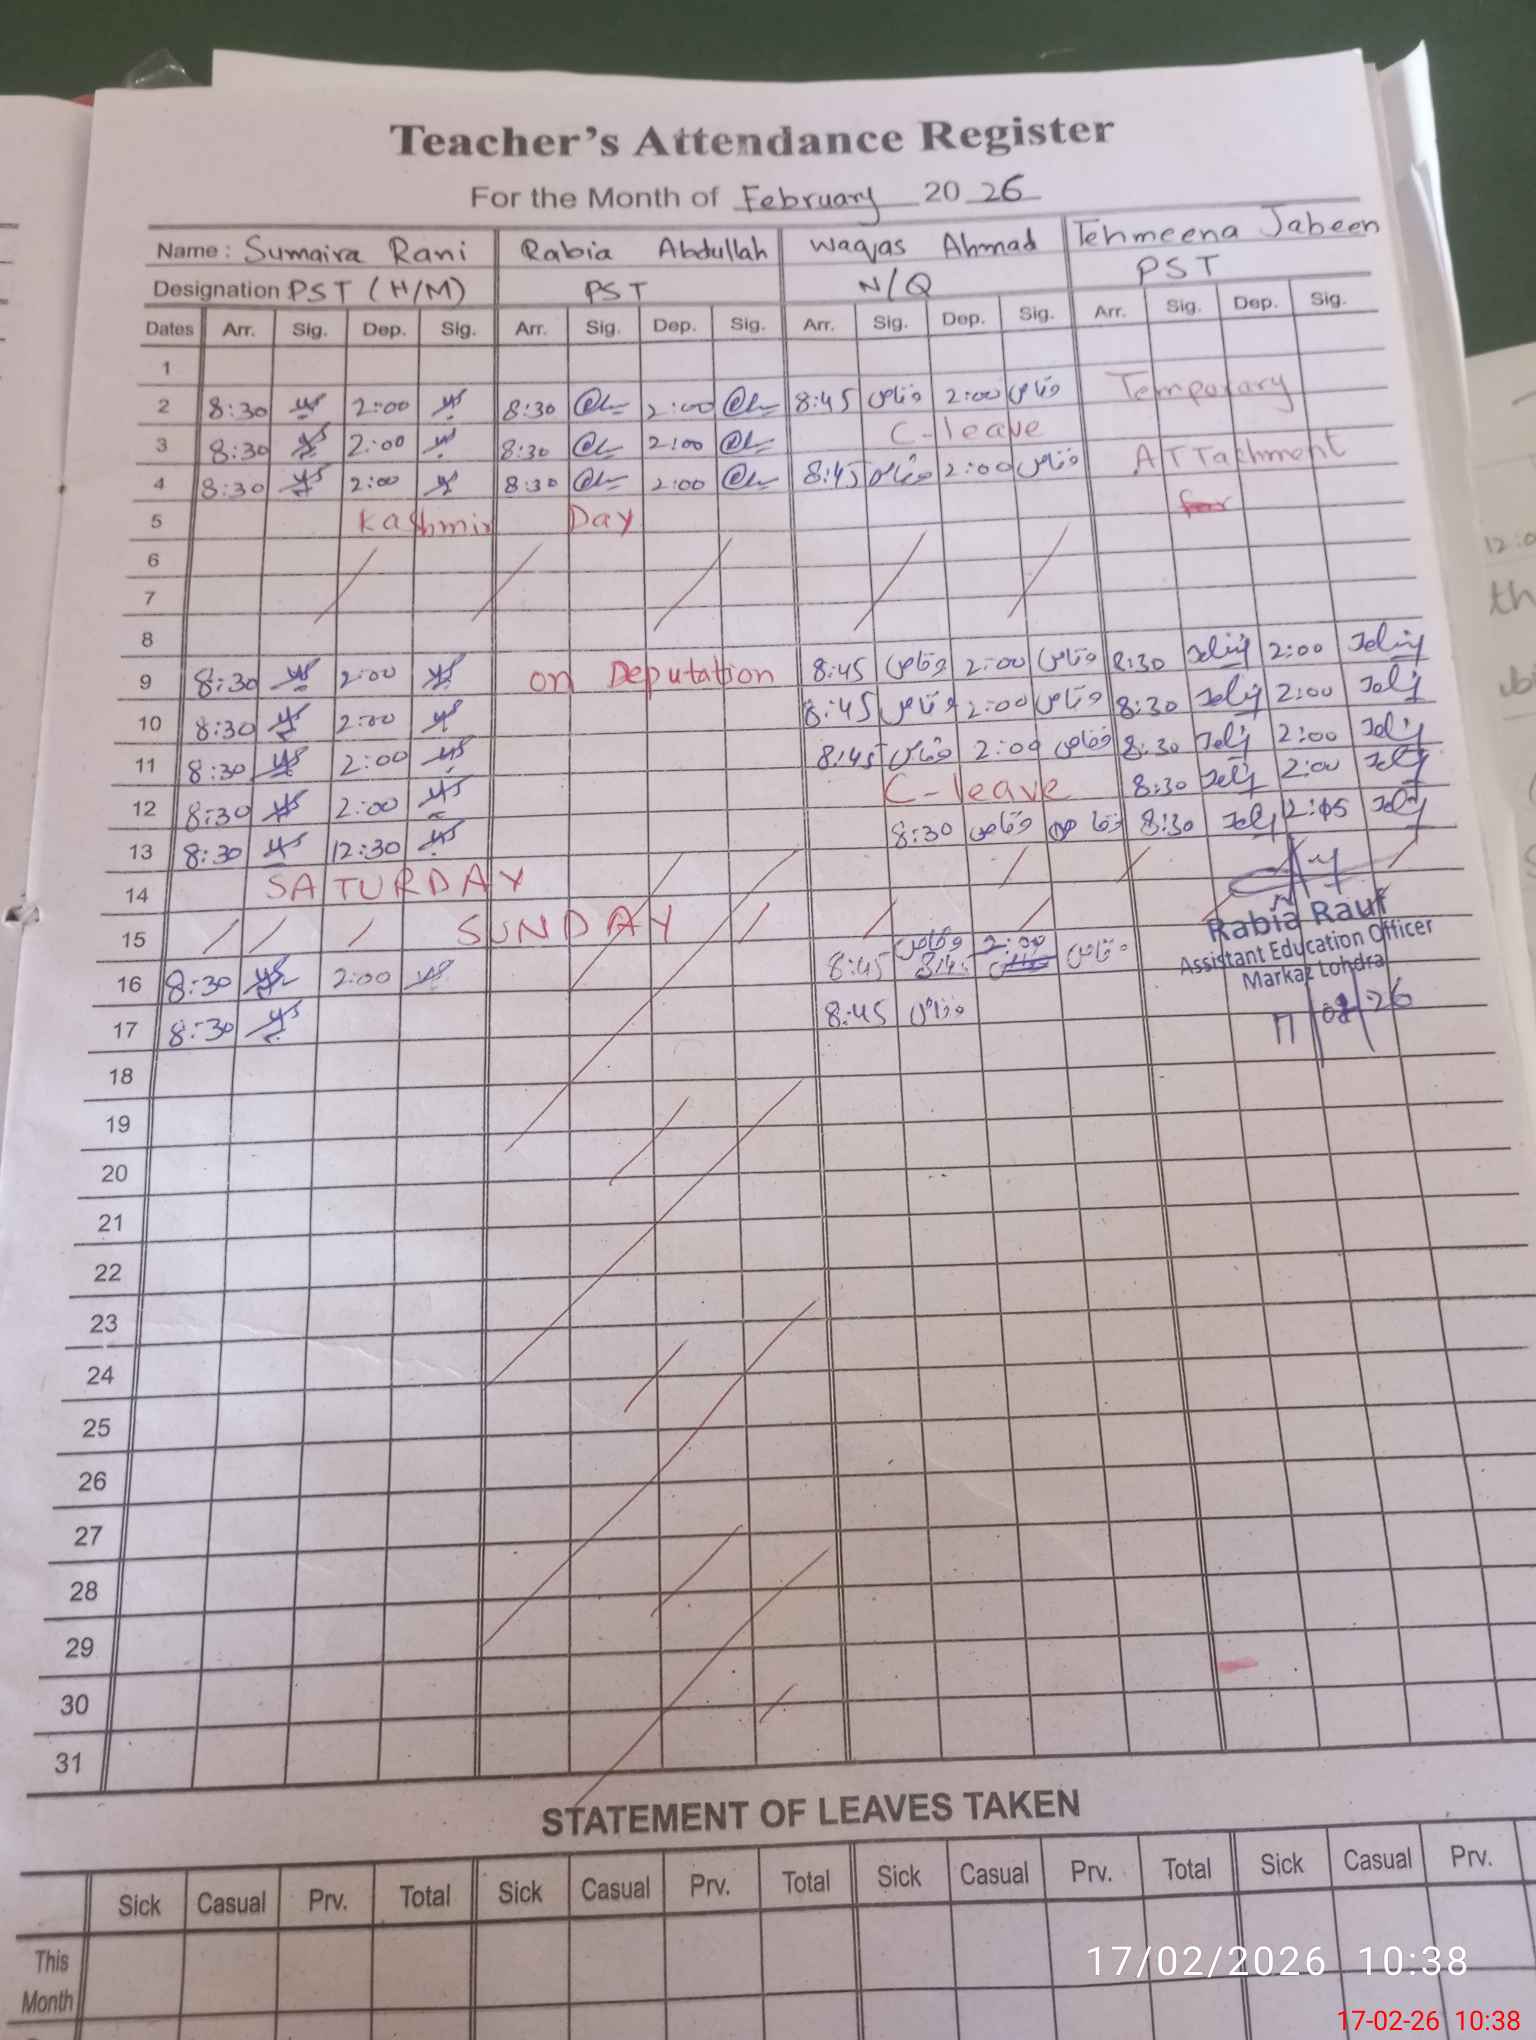 Teacher's Attendance Register
For the Month of February 2026
Name : Sumaira Rani Rabia Abdullah Waqas Ahmad Tehmeena Jabeen
Designation PST (H/M) PST N/Q PST
Dates Arr. Sig. Dep. Sig. Arr. Sig. Dep. Sig. Arr. Sig. Dep. Sig. Arr. Sig. Dep. Sig.
1
2 8:30 2:00 8:30 2:00 8:45 وقاص 2:00 وقاص Temporary
3 8:30 2:00 8:30 2:00 C-leave
4 8:30 2:00 8:30 2:00 8:45 وقاص 2:00 وقاص ATTachment
5 Kashmir Day for
6
7
8
9 8:30 2:00 on Deputation 8:45 وقاص 2:00 وقاص 8:30 2:00
10 8:30 2:00 8:45 وقاص 2:00 وقاص 8:30 2:00
11 8:30 2:00 8:45 وقاص 2:00 وقاص 8:30 2:00
12 8:30 2:00 C-leave 8:30 2:00
13 8:30 12:30 8:30 وقاص وقاص 8:30
14 SATURDAY
15 SUNDAY
16 8:30 2:00 8:45 وقاص 8:45 2:00 وقاص
17 8:30 8:45 وقاص
Rabia Rauf
Assistant Education Officer
Markaz Lohdra
17/02/26
18
19
20
21
22
23
24
25
26
27
28
29
30
31
STATEMENT OF LEAVES TAKEN
Sick Casual Prv. Total Sick Casual Prv. Total Sick Casual Prv. Total Sick Casual Prv.
This
Month
17/02/2026 10:38
17-02-26 10:38
12:0
th